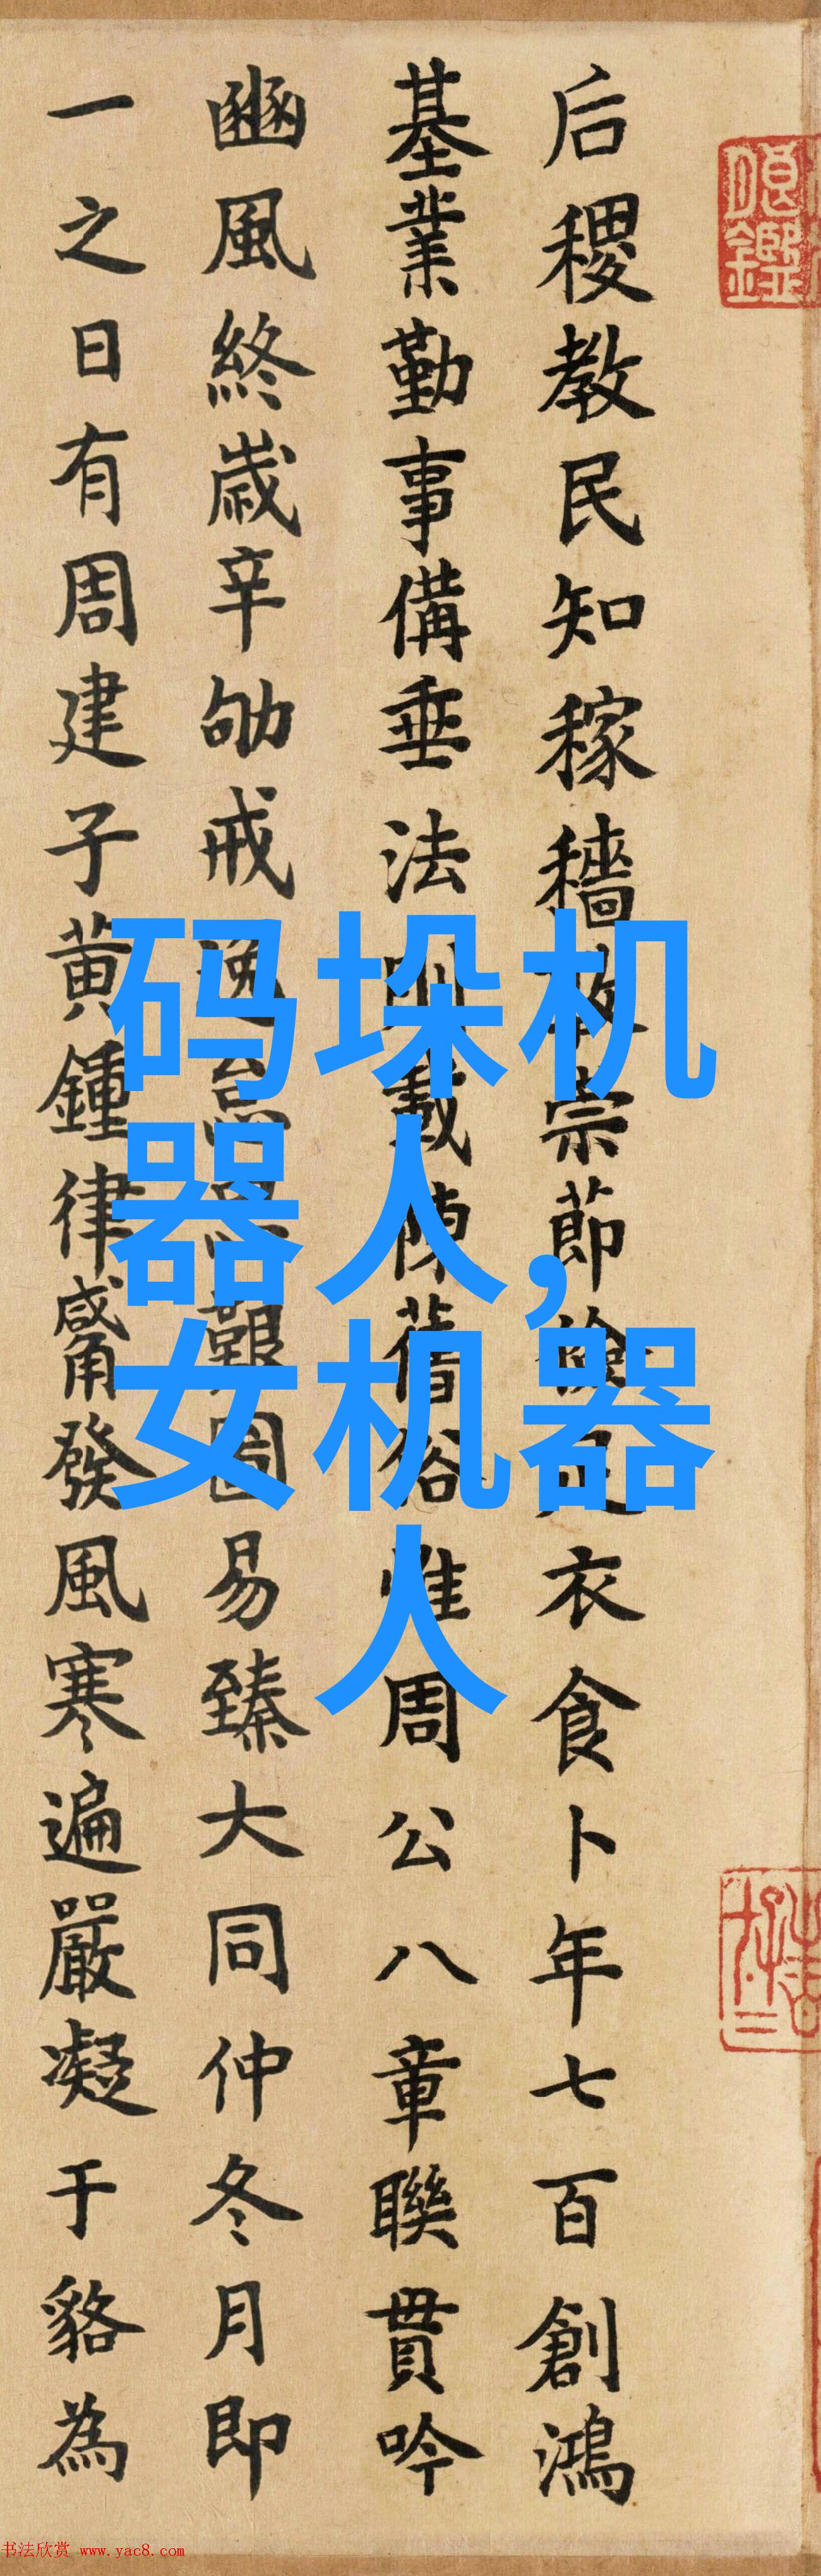 后稷教民知稼穡
宗節儉足衣食卜年七百創鴻
基業勤事備垂法明載陳舊俗惟周公八章聯貫吟
豳風終歲辛劬戒逸
圖易臻大同仲冬月即
一之日有周建子黃鍾律觱發風寒遍嚴凝于貉為
码垛机
器人,
女机器
人
书法欣赏 www.yac8.com